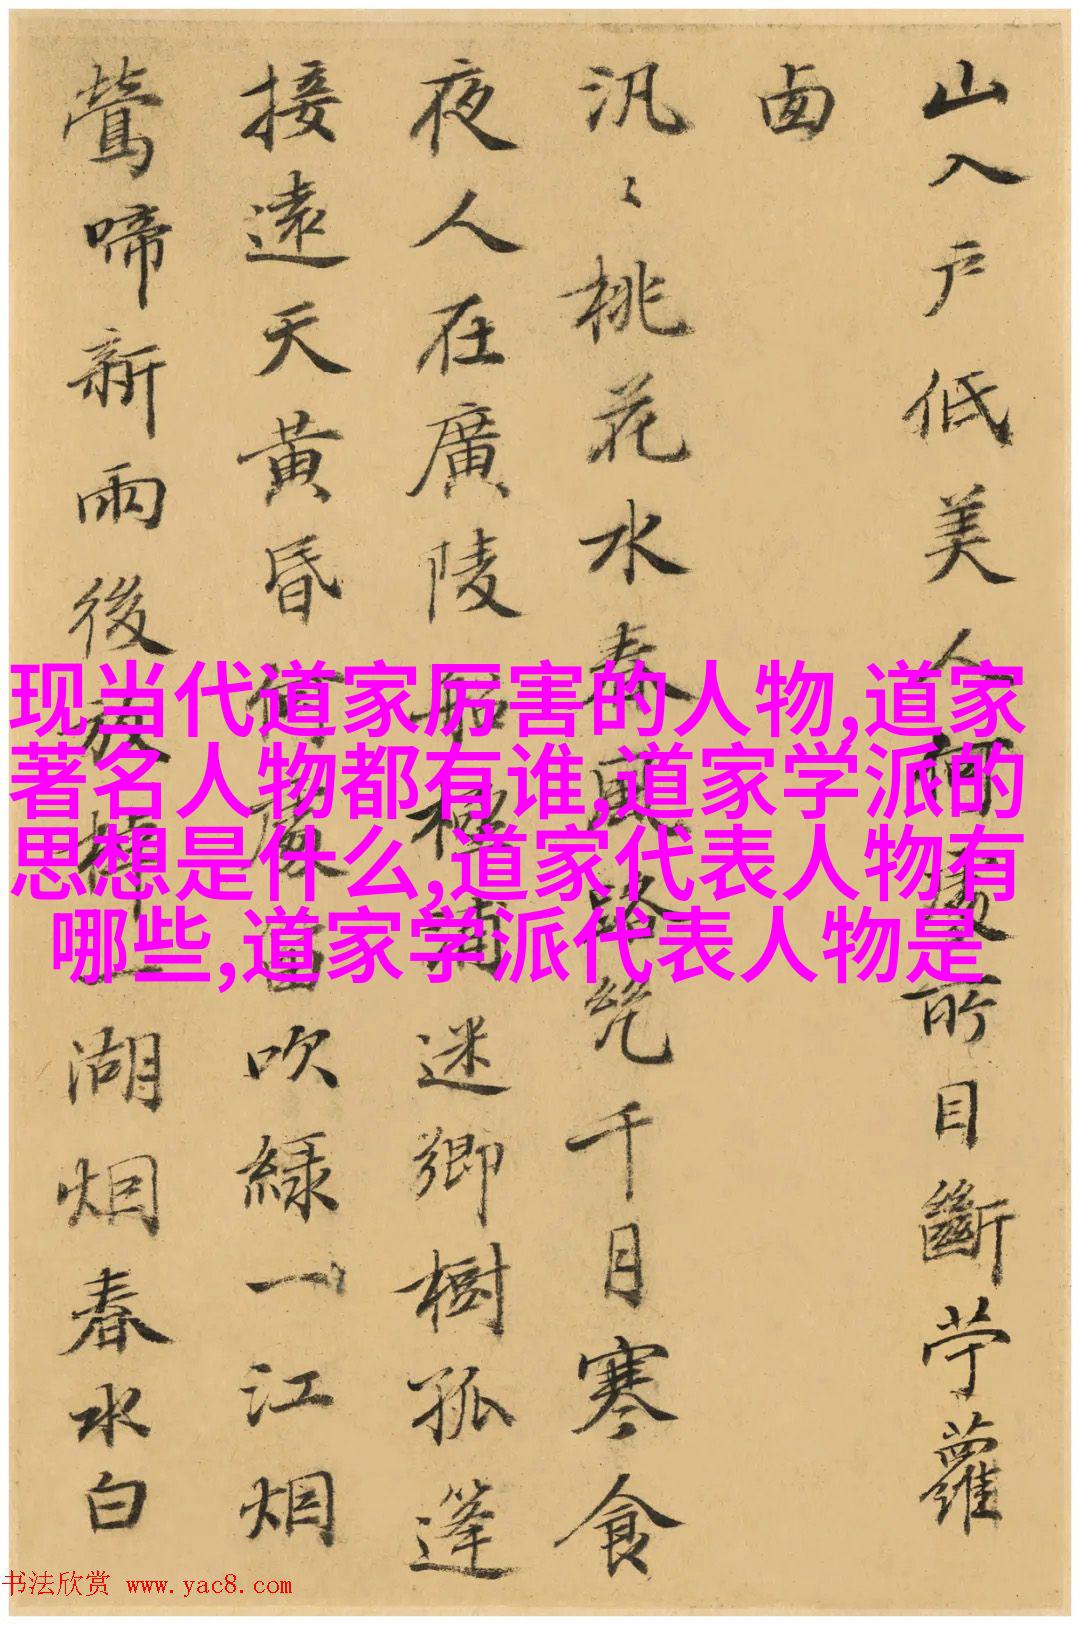 现当代道家厉害的人物,道家
著名人物都有谁,道家学派的
思想是什么,道家代表人物有
哪些,道家学派代表人物是
山入户低美人處所目斷苧蘿
卤
汎〻桃花水路絶千月寒食
夜人在廣陵船極浦迷鄉樹孤篷
接遠天黄昏何處笛吹緑一江烟
鶯啼新雨後放棹一湖烟春水白
书法欣赏 www.yac8.com